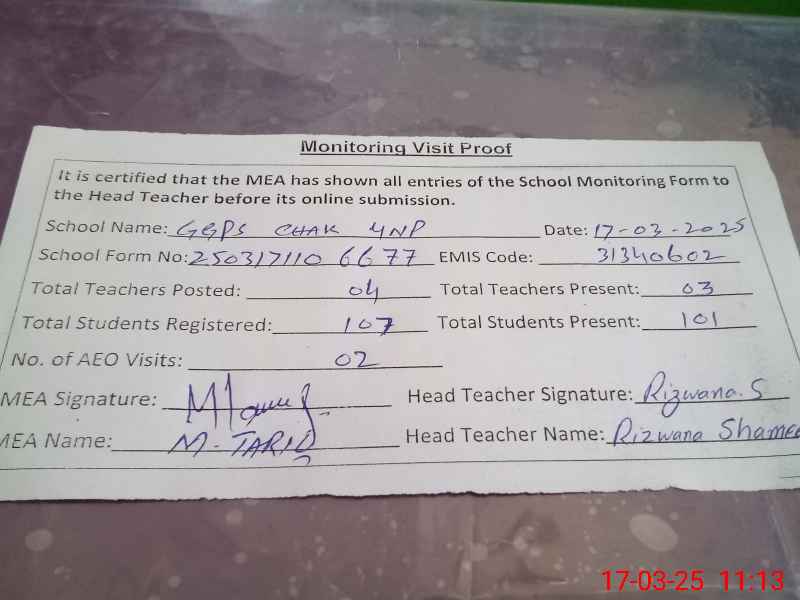 Monitoring Visit Proof
It is certified that the MEA has shown all entries of the School Monitoring Form to
the Head Teacher before its online submission.
School Name: GGPS CHAK 4NP Date: 17-03-2025
School Form No: 2503171106677 EMIS Code: 31340602
Total Teachers Posted: 04 Total Teachers Present: 03
Total Students Registered: 107 Total Students Present: 101
No. of AEO Visits: 02
MEA Signature: Head Teacher Signature: Rizwana.S
MEA Name: M-TARIQ Head Teacher Name: Rizwana Shamee
17-03-25 11:13